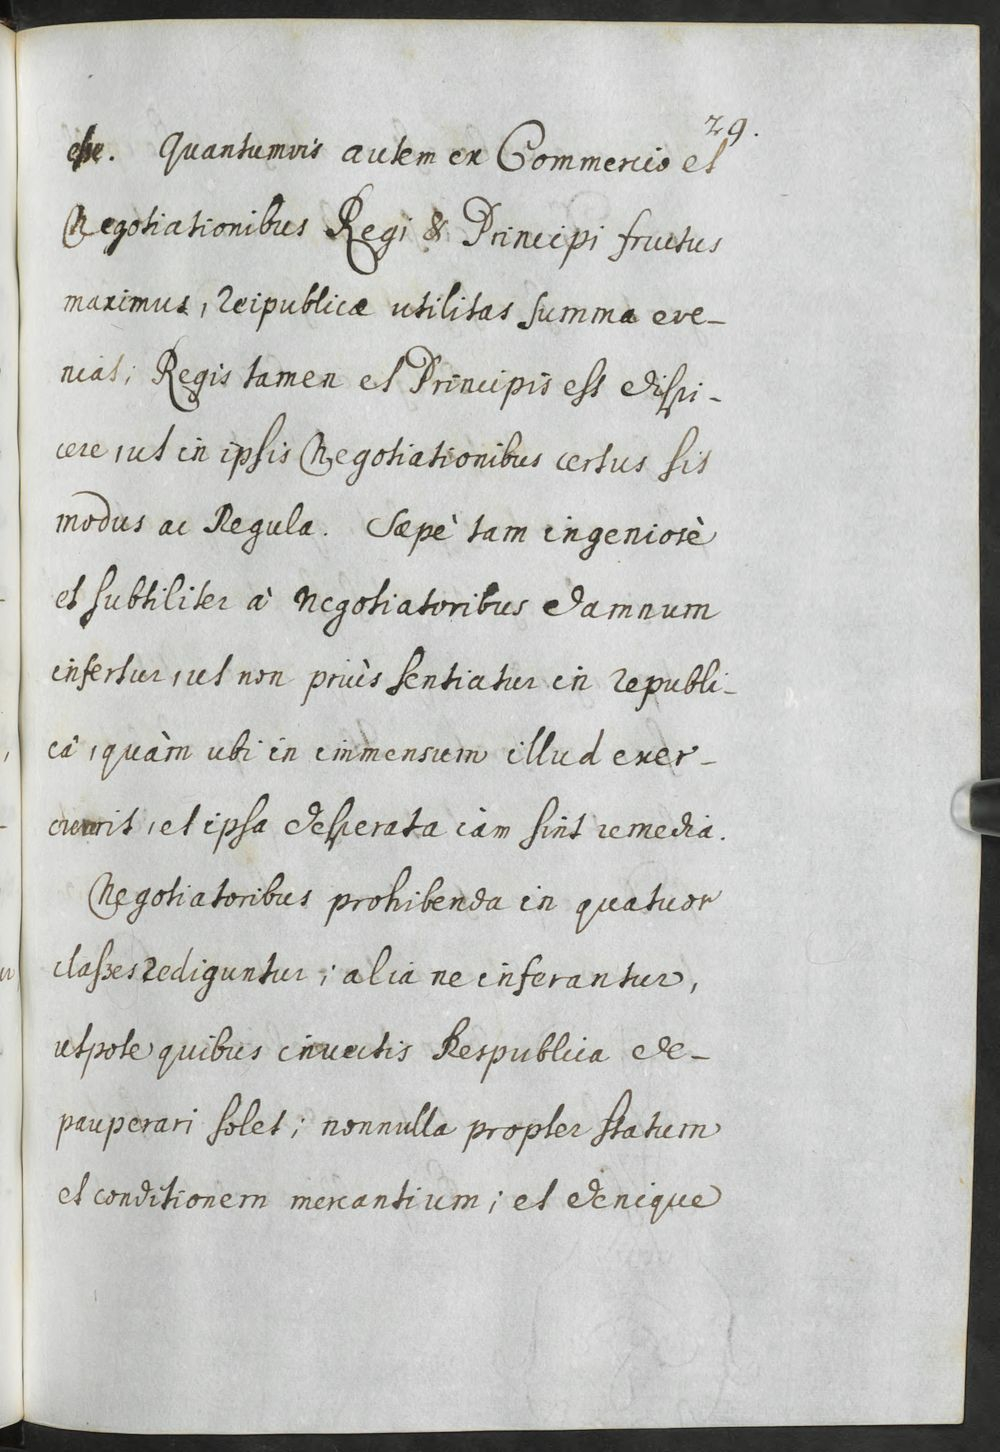 29.
esse. Quantumvis autem ex Commercio et
Negotiationibus Regi & Principi fructus
maximus, Reipublicæ utilitas summa eve-
niat; Regis tamen et Principis est dispi-
cere, ut in ipsis Negotiationibus certus sit
modus ac Regula. Sæpè tam ingeniosè
et subtiliter à Negotiatoribus damnum
infertur, ut non priùs sentiatur in republi-
câ, quàm ubi in immensum illud excr-
everit, et ipsa desperata iàm sint remedia.
Negotiatoribus prohibenda in quatuor
classes rediguntur; alia ne inferantur,
utpote quibus invectis Respublica de-
pauperari solet; nonnulla propter statum
et conditionem mercantium; et denique